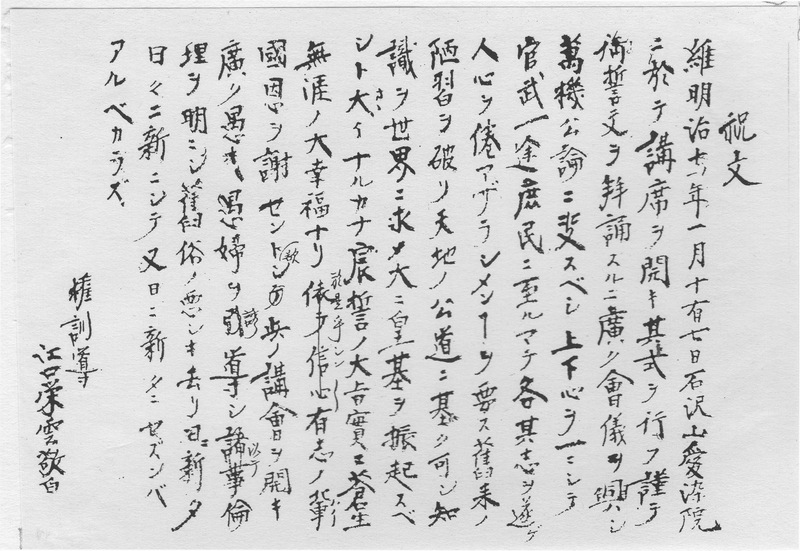 祝文
維明治七年一月十有七日石沢山愛染院
ニ於テ講席ヲ開キ其式ヲ行フ謹テ
御誓文ヲ拜誦スルニ廣ク會儀ヲ興シ
萬機公論ニ決スベシ上下心ヲ一ニシテ
官武一途庶民ニ至ルマテ各其志ヲ遂ケ
人心ヲ倦アザラシメンヿヲ要ス舊来ノ
陋習ヲ破リ天地ノ公道ニ基ク可シ知
識ヲ世界ニ求メ大ニ皇基ヲ振起スベ
シト大イナルカナ宸誓ノ大旨實ニ蒼生
無涯ノ大幸福ナリ依テ信心有志ノ輩
國恩ヲ謝セント欲シ此ノ講會ヲ開キ
廣ク愚夫愚婦ヲ誘導シ諸事倫
理ヲ明ニシ舊俗ノ悪シキ去リ日新タ
日々ニ新ニシテ又日ニ新タニセズンバ
アルベカラズ
権訓導
江口栄雲敬白